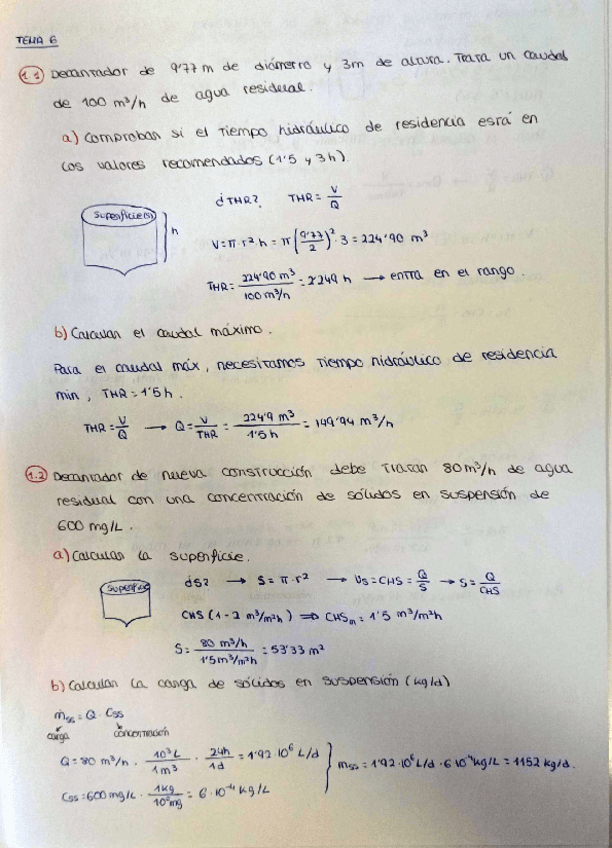 TEMA 6
1.1 Decantador de 9'77 m de diámetro y 3m de altura. Trata un caudal
de 100 m³/h de agua residual.
a) Comprobar si el tiempo hidráulico de residencia está en
los valores recomendados (1'5 y 3h).
Superficie(S)
h
¿THR? THR = V/Q
V = π·r²·h = π(9'77/2)²·3 = 224'90 m³
THR = 224'90 m³/100 m³/h = 2'249 h → entra en el rango.
b) Calcular el caudal máximo.
Para el caudal máx, necesitamos tiempo hidráulico de residencia
min, THR = 1'5 h.
THR = V/Q → Q = V/THR = 224'9 m³/1'5 h = 149'94 m³/h
1.2 Decantador de nueva construcción debe tratar 80 m³/h de agua
residual con una concentración de sólidos en suspensión de
600 mg/L.
a) Calcular la superficie.
Superficie
¿S? → S = π·r² → Vs = CHS = Q/S → S = Q/CHS
CHS (1-2 m³/m²h) ⇒ CHSm = 1'5 m³/m²h
S = 80 m³/h/1'5 m³/m²h = 53'33 m²
b) Calcular la carga de sólidos en suspensión (kg/d)
ṁss = Q · Css
carga concentración
Q = 80 m³/h · 10³ L/1 m³ · 24h/1d = 1'92·10⁶ L/d
Css = 600 mg/L · 1kg/10⁶ mg = 6·10⁻⁴ kg/L
ṁss = 1'92·10⁶ L/d · 6·10⁻⁴ kg/L = 1152 kg/d.